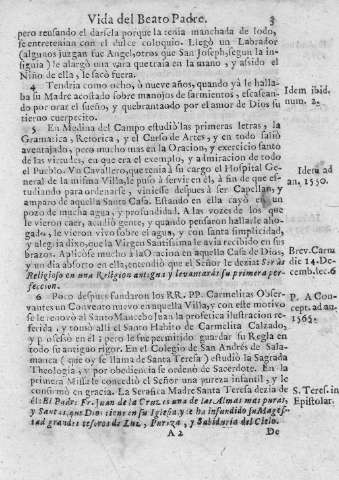 Vida del Beato Padre. 3
pero reusando el darsela porque la tenia manchada de lodo,
se entretenian con el dulce coloquio. Llegò un Labrador
(algunos juzgan fue Angel, otros que San Joseph, segun la in-
signia) le alargò una vara quetraia en la mano, y asido el
Niño de ella, le sacò fuera.
4 Tendria como ocho, ò nueve años, quando yà le halla-
ba su Madre acostado sobre manojos de sarmientos, escasean-
do por orar el sueño, y quebrantando por el amor de Dios su
tierno cuerpecito.
Idem ibid.
num. 2.
5 En Medina del Campo estudiò las primeras letras, la
Gramatica, Retorica, y el Curso de Artes, y en todo saliò
aventajado, pero mucho mas en la Oracion, y exercicio santo
de las virtudes, en que era el exemplo, y admiracion de todo
el Pueblo. Vn Cavallero, que tenia à su cargo el Hospital Ge-
neral de la misma Villa, le puso à servir en èl, à fin de que es-
tudiando para ordenarse, viniesse despues à ser Capellan, y
amparo de aquella Santa Casa. Estando en ella cayò en un
pozo de mucha agua, y profundidad. A las vozes de los que
le vieron caer, acudiò gente, y quando pensaron hallarle aho-
gado, le vieron vivo sobre el agua, y con santa simplicidad,
y alegria dixo, que la Virgen Santissima le avia recibido en sus
brazos. Aplicòse mucho à la Oracion en aquella Casa de Dios,
y un dia absorto en ella, entendiò que el Señor le dezia: Seràs
Religioso en una Religion antigua y levantaràs su primera per-
feccion.
Idem ad
an. 1550.
Brev. Carm
die 14. De-
cemb. lec. 6
6 Poco despues fundaron los RR. PP. Carmelitas Obser-
vantes un Convento nuevo en aquella Villa, y con este motivo
se le renovò al Santo Mancebo Juan la profetica ilustracion re-
ferida, y tomò alli el Santo Habito de Carmelita Calzado,
y professò en èl; pero le fue permitido guardar su Regla en
todo su antiguo rigor. En el Colegio de San Andrès de Sala-
manca (que oy se llama de Santa Teresa) estudiò la Sagrada
Theologia, y por obediencia se ordenò de Sacerdote. En la
primera Missa le concediò el Señor una pureza infantil, y le
consumiò en gracia. La Serafica Madre Santa Teresa dezia de
èl: El Padre Fr. Juan de la Cruz es una de las Almas mas puras,
y Santas que Dios tiene en su Iglesia y le ha infundido su Mages-
tad grandes tesoros de Luz, Pureza, y Sabiduria del Cielo.
P. A Con-
cept. ad an.
1563.
S. Teres. in
Epistolar.
A 2 De